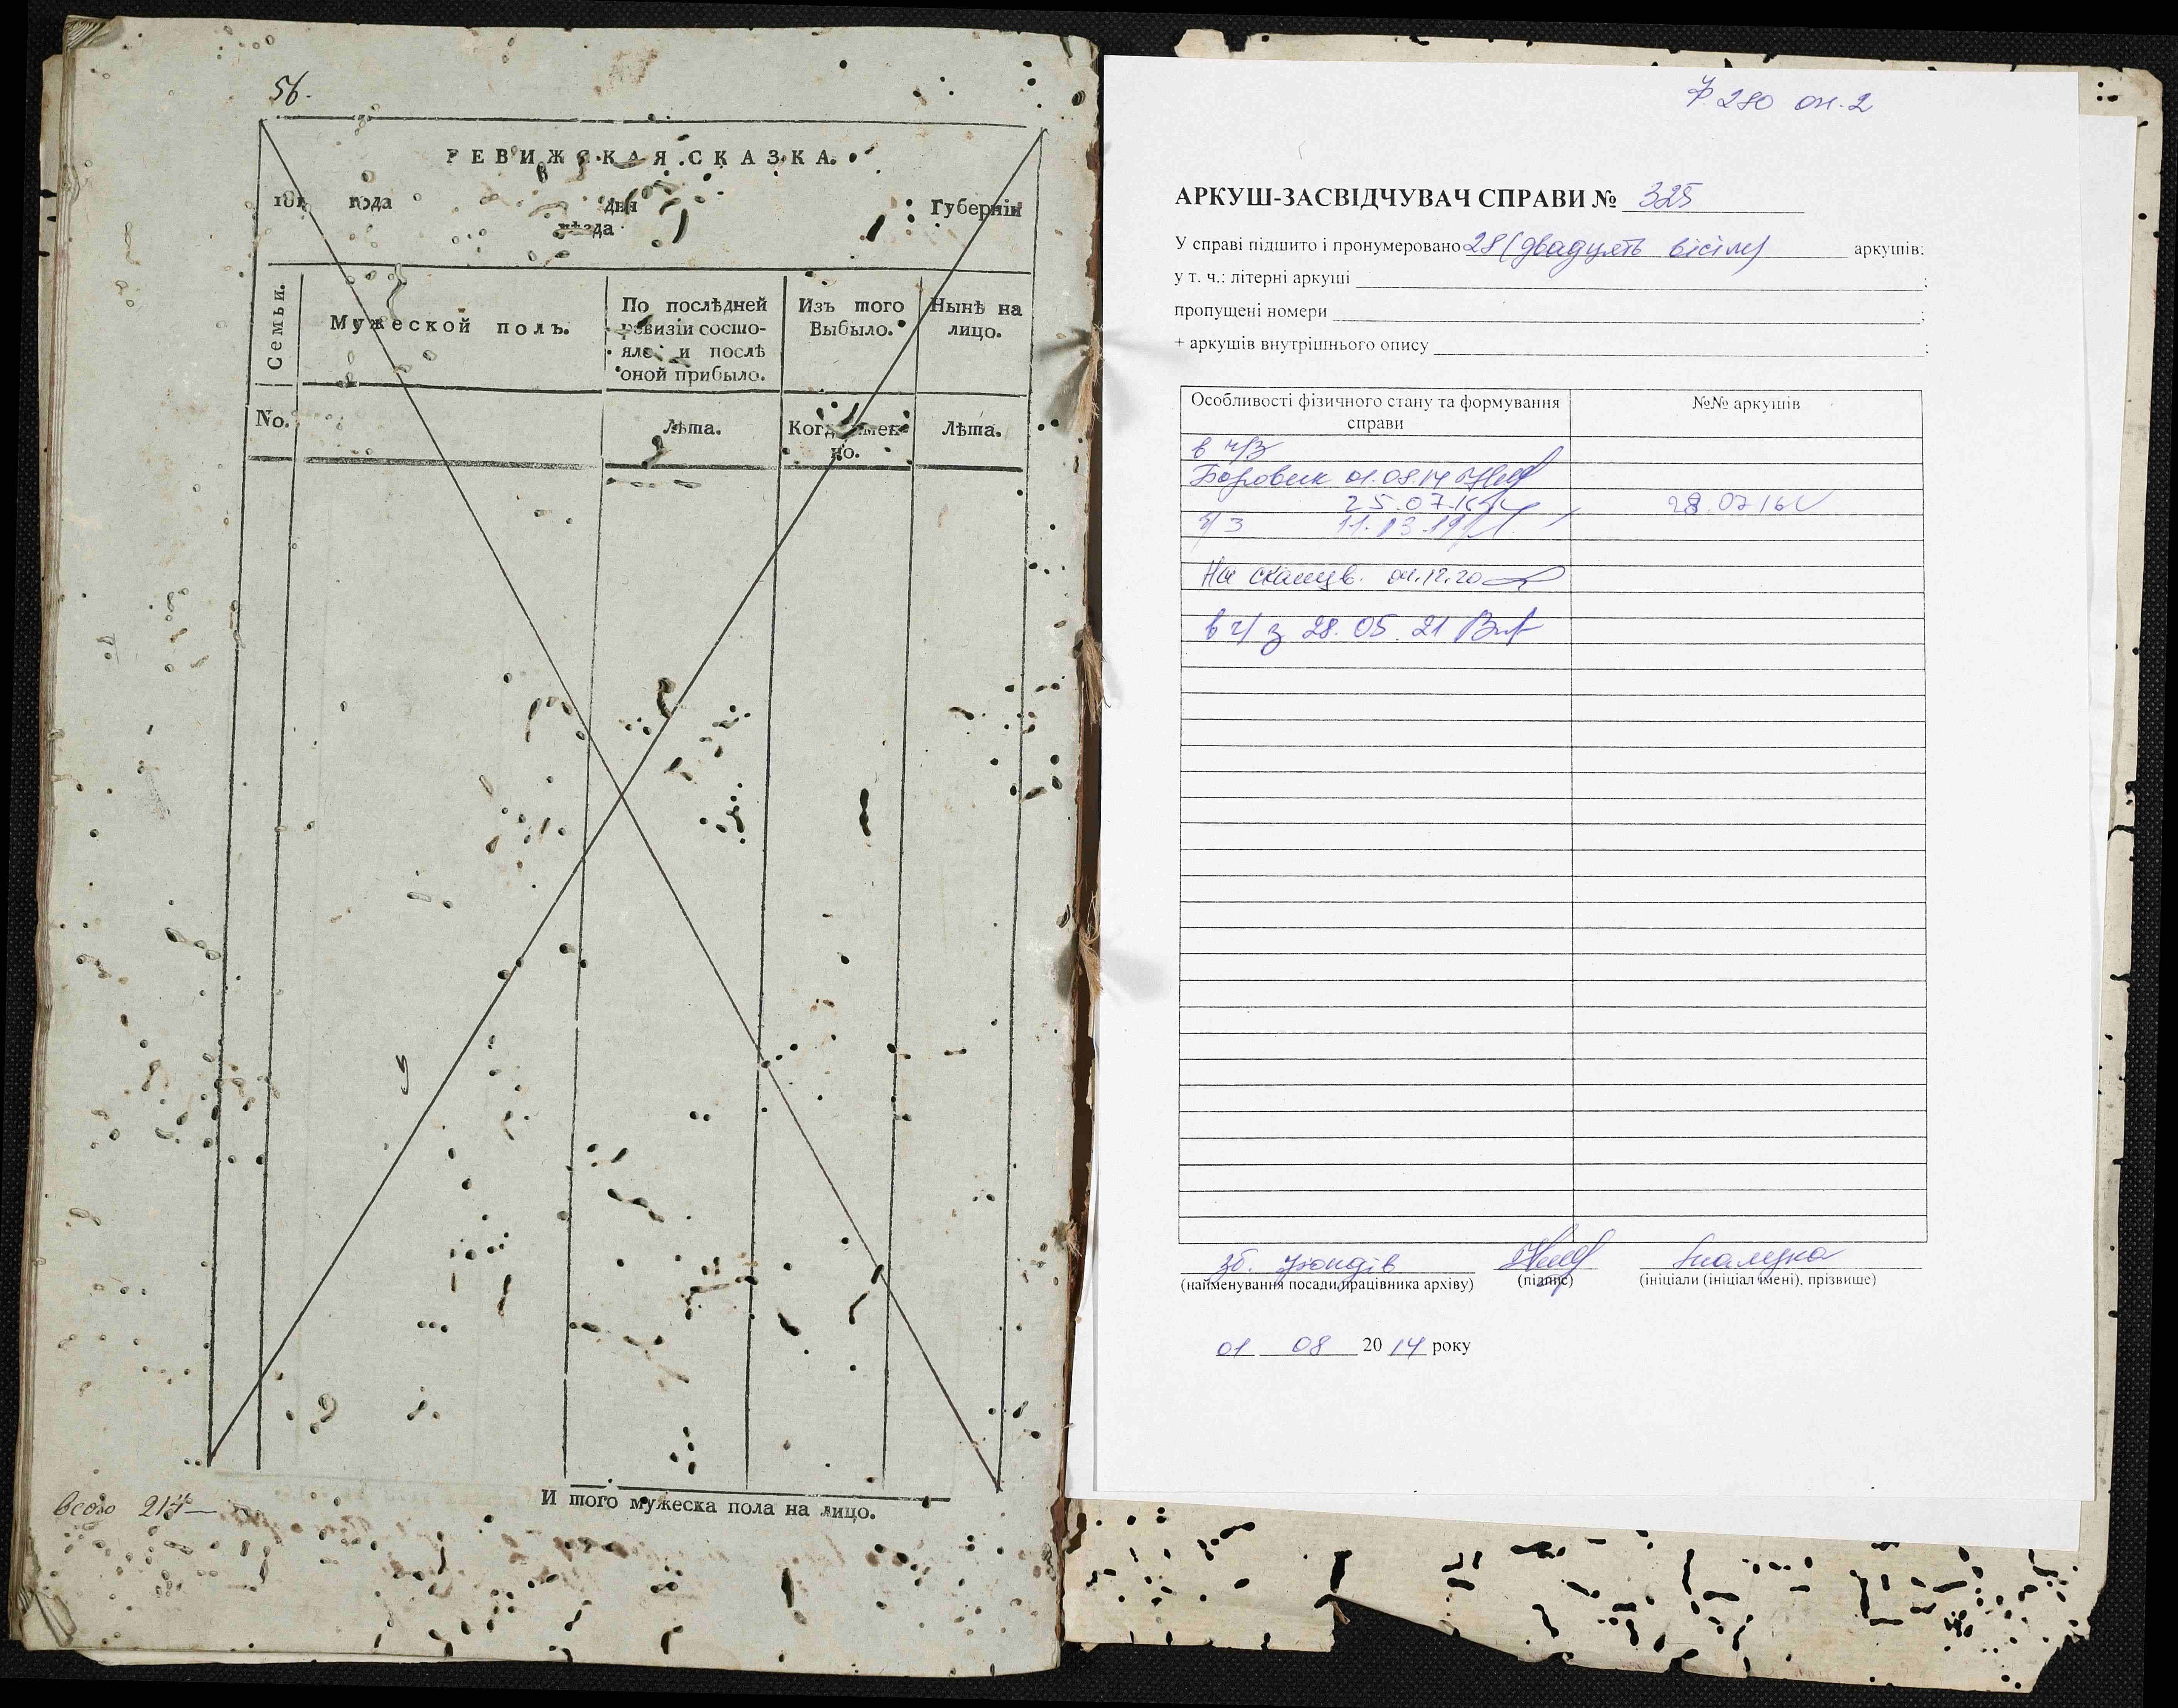 56.
РЕВИЖСКАЯ СКАЗКА.
181 года дня Губерніи
уѣзда
Семьи.
Мужеской полъ.
По послѣдней ревизіи состо-
яло и послѣ
оной прибыло.
Изъ того
Выбыло.
Нынѣ на
лицо.
No.
Лѣта.
Когда имен-
но.
Лѣта.
И того мужеска пола на лицо.
всего 214
Ф 280 оп. 2
АРКУШ-ЗАСВІДЧУВАЧ СПРАВИ № 325
У справі підшито і пронумеровано 28 (двадцять вісім) аркушів;
у т. ч.: літерні аркуші ;
пропущені номери ;
+ аркушів внутрішнього опису ;
Особливості фізичного стану та формування
справи
№№ аркушів
в ч/з
Боровик 01.08.14
25.07.16 28.07 16
ч/з 11.03.19
На сканув. 04.12.20
в ч/з 28.05.21
зб. фондів
(найменування посади працівника архіву) (підпис) (ініціали (ініціал імені), прізвище)
01 08 2014 року